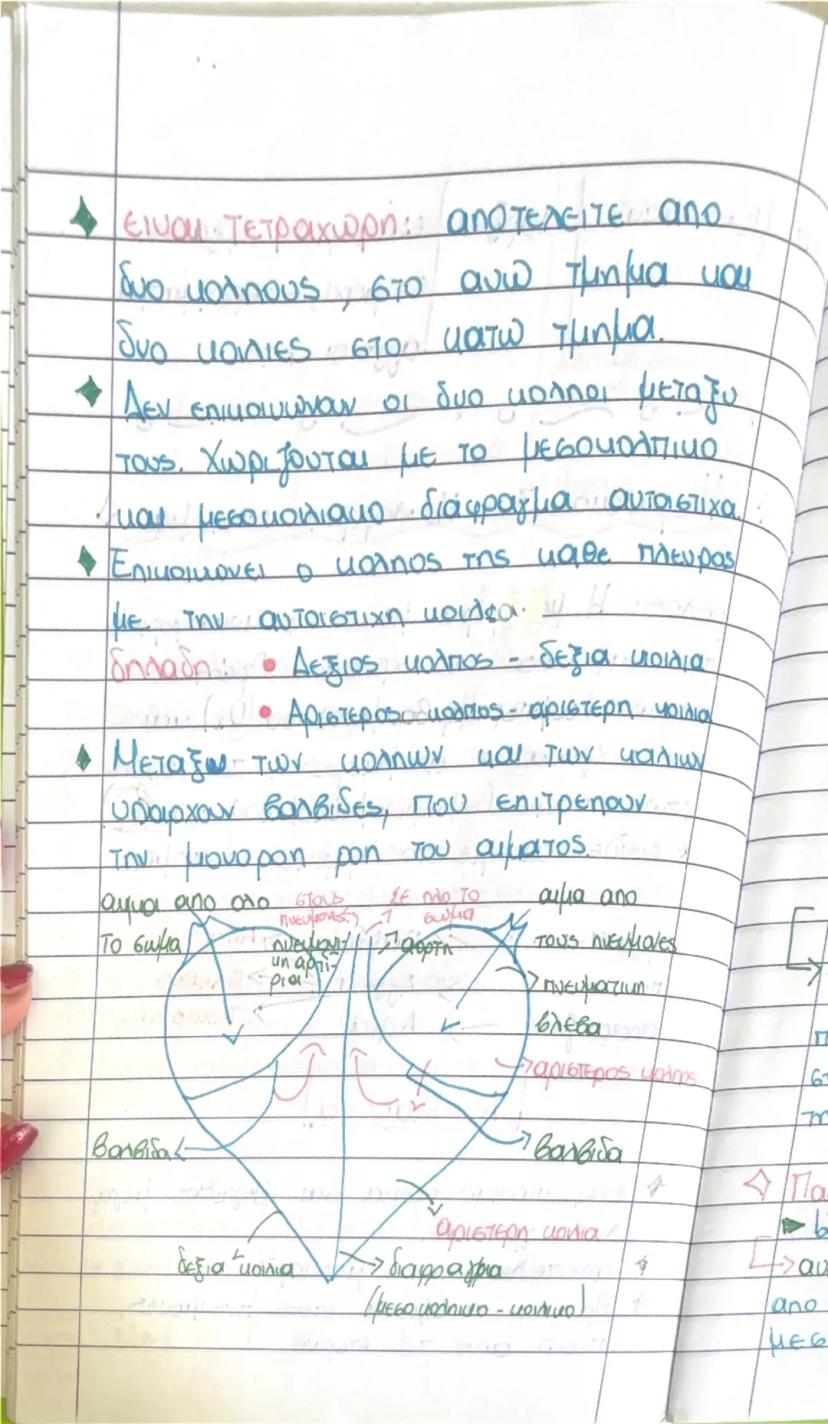 ειναι τετραχωρη: αποτελειτε απο
δυο κολπους, στο ανω τμημα και
δυο κοιλιες στο κατω τμημα.
Δεν επικοινωναν οι δυο κολποι μεταξυ
τους. Χωριζονται με το μεσοκολπικο
και μεσοκοιλιακο διαφραγμα αντοιστιχα.
Επικοικονει ο κολπος της καθε πλευρας
με την αντοιστιχη κοιλια.
δηλαδη: • Δεξιος κολπος - δεξια κοιλια
• Αριστερος κολπος - αριστερη κοιλια
Μεταξυ των κολπων και των κοιλιων
υπαρχουν βαλβιδες, που επιτρεπουν
την μονοροπη ροη του αιματος.
αιμα απο ολο
το σωμα
στους
πνευμονες
Σε ολο το
σωμα
αορτη
αιμα απο
τους πνευμονες
πνευματικη
βλεβα
αριστερος κολπος
βαλβιδα
βαλβιδα
αριστερη κοιλια
δεξια κοιλια
διαφραγμα
(μεσοκολπικο - κοιλικο)
Πα
απο
μεσ